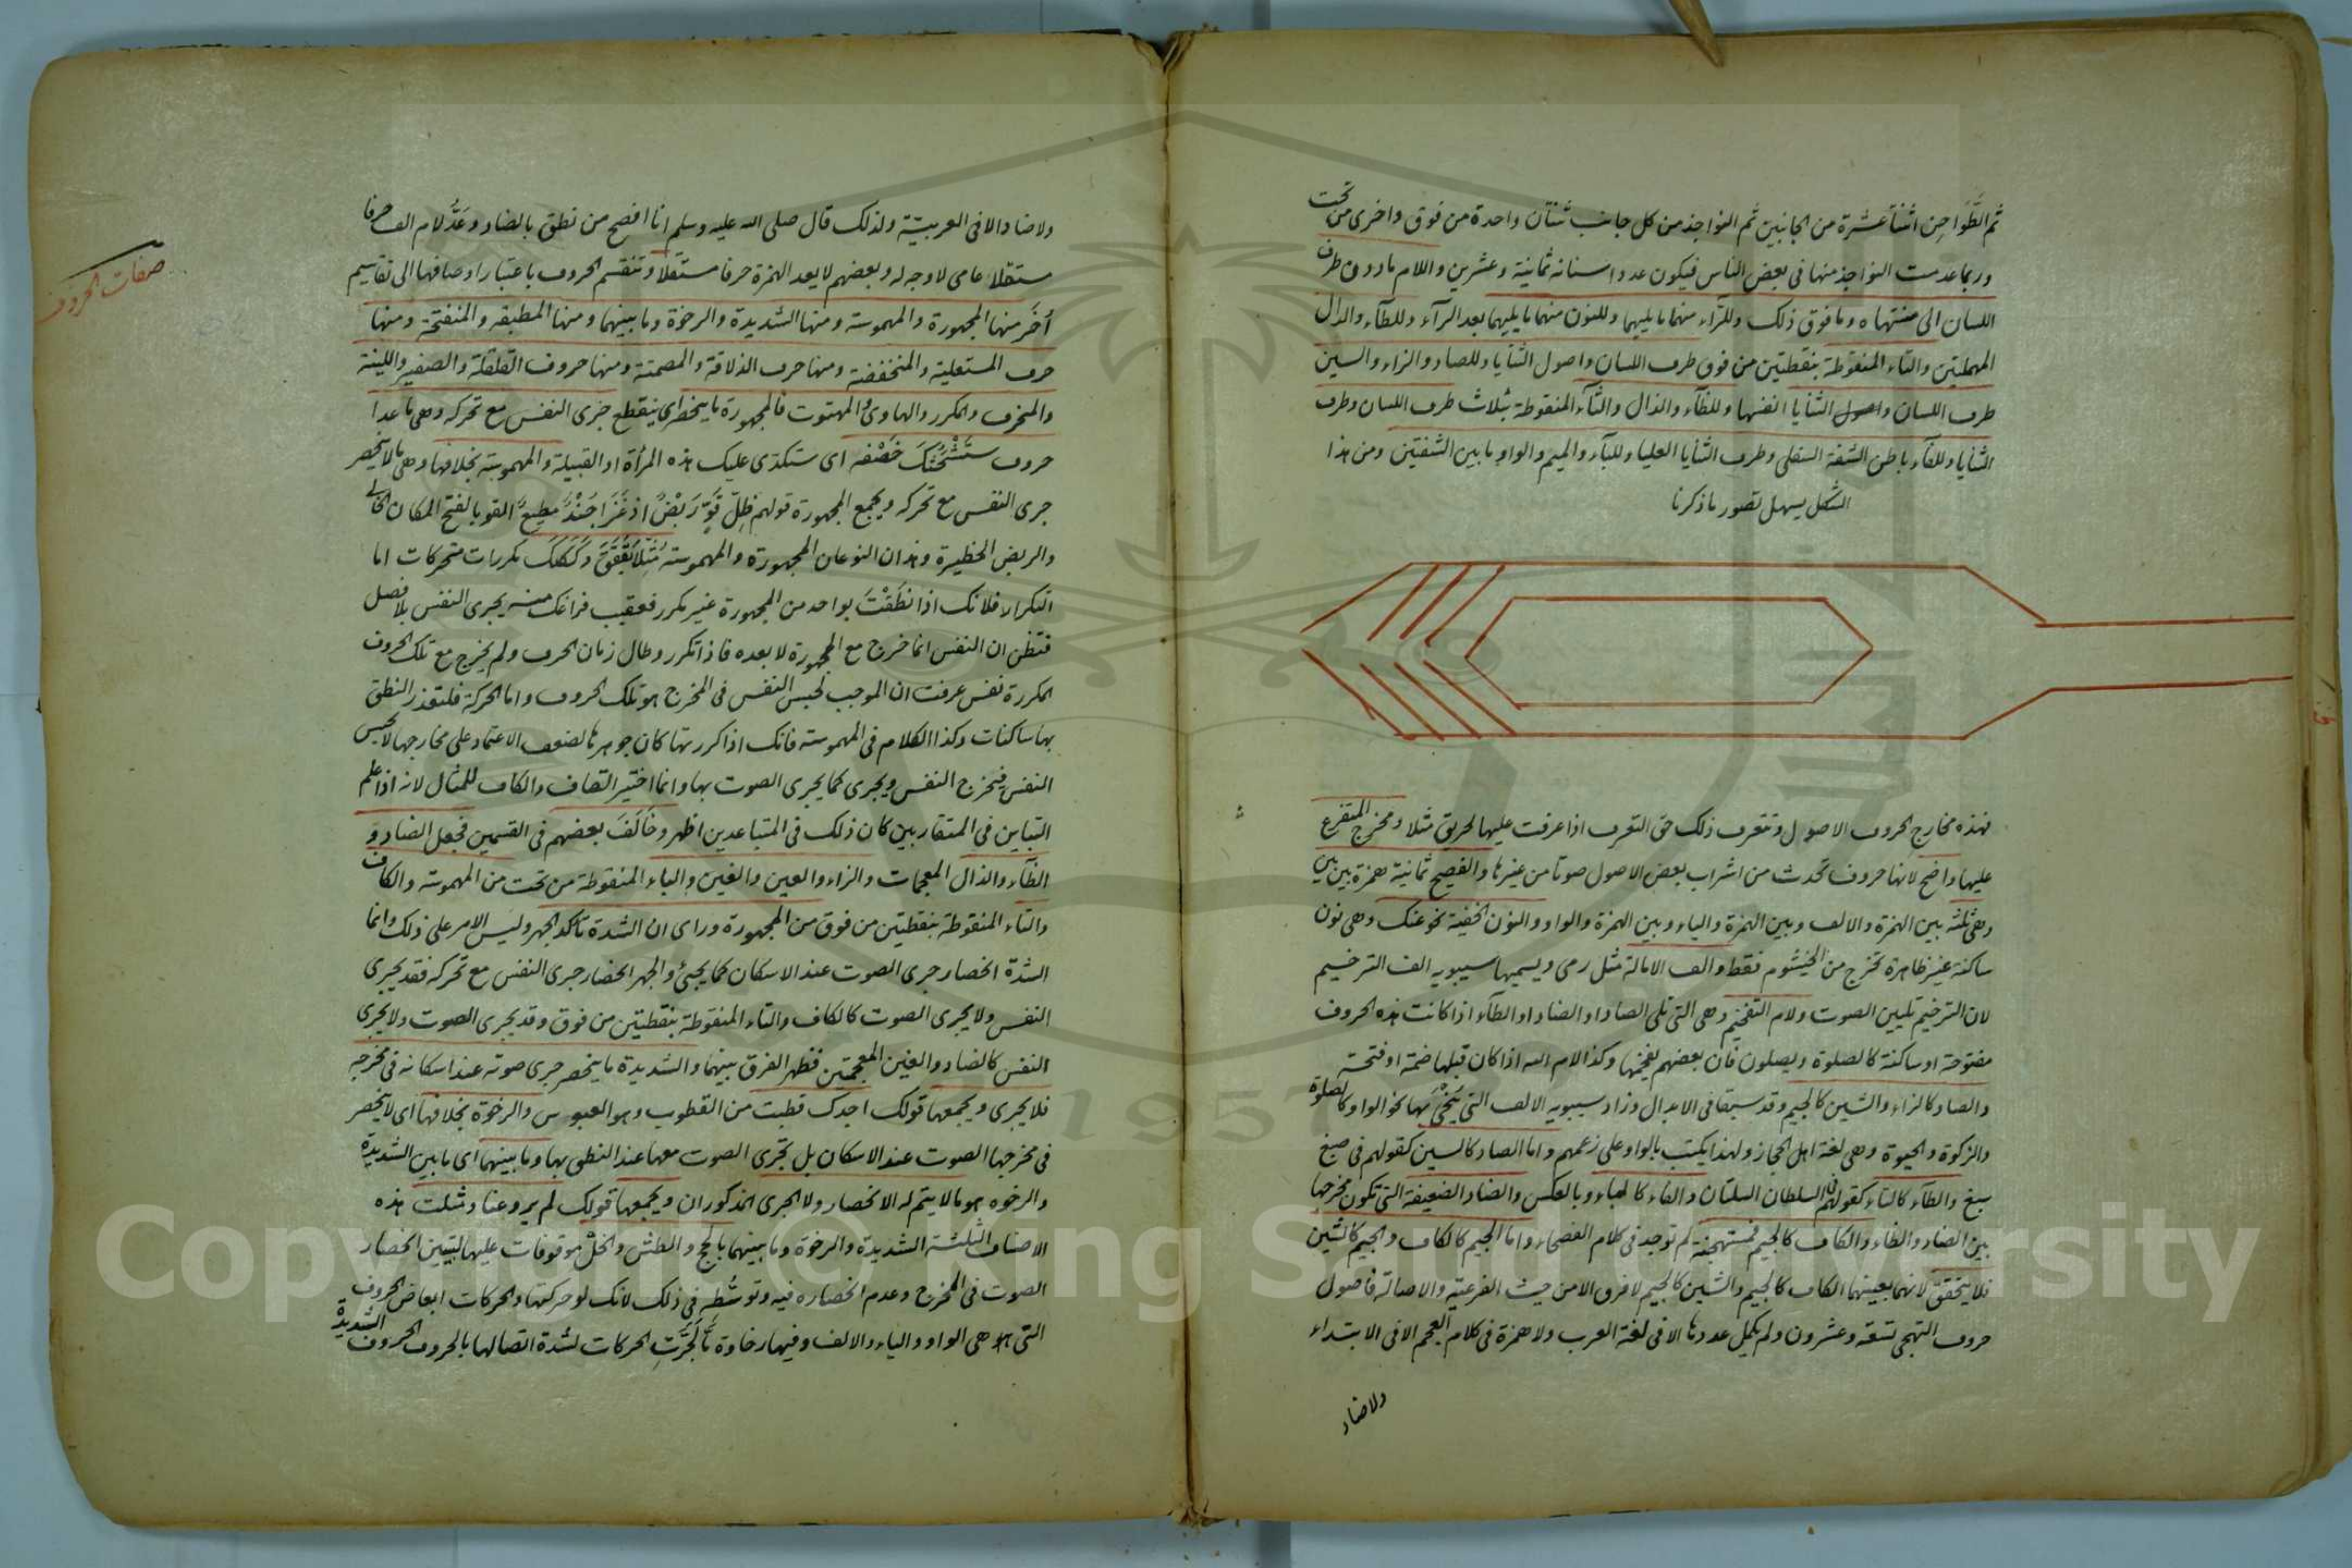 ثم الطَّوَاحِن اثنتا عشرة من الجانبين ثم النواجذ من كل جانب ثنتان واحدة من فوق واخرى من تحت
وربما عدمت النواجذ منها فى بعض الناس فيكون عدد اسنانه ثمانية وعشرين واللام ما دون طرف
اللسان الى منتهاه وما فوق ذلك وللرّاء منهما ما يليهما وللنون منهما ما يليهما بعد الرآء وللطآء والدال
المهملتين والتاء المنقوطة بنقطتين من فوق طرف اللسان واصول الثنايا وللصاد والزاء والسين
طرف اللسان واصول الثنايا انفسها وللظآء والذال والثآء المنقوطة بثلاث طرف اللسان وطرف
الثنايا وللفآء باطن الشفة السفلى وطرف الثنايا العليا وللبآء والميم والواو ما بين الشفتين ومن هذا
الشكل يسهل تصور ما ذكرنا
فهذه مخارج الحروف الاصول وتتعرف ذلك حق التعرف اذا عرفت عليها لحريق مثلا ومخرج المتفرع
عليها واضح لانها حروف تحدث من اشراب بعض الاصول صوتا من غيرها والفصيح ثمانية همزة بين بين
وهى ثلثة بين الهمزة والالف وبين الهمزة والياء وبين الهمزة والواو والنون الخفية نحو عنك وهى نون
ساكنة غير ظاهرة تخرج من الخيشوم فقط والف الامالة مثل رمى ويسميها سيبويه الف الترخيم
لان الترخيم تليين الصوت ولام التفخيم وهى التى تلى الصاد او الضاد او الطآء اذا كانت هذه الحروف
مفتوحة او ساكنة كالصلوة ويصلون فان بعضهم يفخمها وكذا لام الله اذا كان قبلها ضمة او فتحة
والصاد كالزاء والشين كالجيم وقد سبقا فى الابدال وزاد سيبويه الالف التى يُنحى بها نحو الواو كالصلوة
والزكوة والحيوة وهى لغة اهل الحجاز ولهذا يكتب بالواو على زعمهم واما الصاد كالسين كقولهم فى صبغ
سبغ والطآء كالتاء كقولهم فى السلطان السلتان والفاء كالباء وبالعكس والضاد الضعيفة التى تكون مخرجها
بين الضاد والظاء والكاف كالجيم فمستهجنة لم توجد فى كلام الفصحاء واما الجيم كالكاف والجيم كالشين
فلا يتحقق لانهما بعينهما الكاف كالجيم والشين كالجيم لا فرق الا من حيث الفرعية والاصالة فاصول
حروف التهجى تسعة وعشرون ولم يكمل عددها الا فى لغة العرب ولا همزة فى كلام العجم الا فى الابتداء
ولا ضاد
صفات الحروف
ولا ضاد الا فى العربيّة ولذلك قال صلى الله عليه وسلم انا افصح من نطق بالضاد وعَدُّ لام الف حرفا
مستقلا عامى لا وجه له وبعضهم لا يعد الهمزة حرفا مستقلا وتنقسم الحروف باعتبار اوصافها الى تقاسيم
اُخَر منها المجهورة والمهموسة ومنها الشديدة والرخوة وما بينهما ومنها المطبقة والمنفتحة ومنها
حرف المستعلية والمنخفضة ومنها حرف الذلاقة والمصمتة ومنها حروف القلقلة والصفير واللينة
والمنحرف والمكرر والهاوى والمهتوت فالمجهورة ما ينحصر اى ينقطع جرى النفس مع تحركه وهى ما عدا
حروف سَتَشْحَثُكَ خَصْفَه اى ستكدى عليك هذه المرأة او القبيلة والمهموسة بخلافها وهى ما لا ينحصر
جرى النفس مع تحركه ويجمع المجهورة قولهم ظِلّ قَوٍّ رَبَضٌ اذ غَزَا جُنْدٌ مطيعٌ القو بالفتح المكان الخالى
والربض الحظيرة وهذان النوعان المجهورة والمهموسة مُثِّلا بقَقَقَ وكَكَكَ مكررات متحركات اما
التكرار فلانك اذا نطَقْتَ بواحد من المجهورة غير مكرر فعقيب فراغك منه يجرى النفس بلا فصل
فتظن ان النفس انما خرج مع المجهورة لا بعده فاذا تكرر وطال زمان الحرف ولم يخرج مع تلك الحروف
المكررة نفس عرفت ان الموجب لحبس النفس فى المخرج هو تلك الحروف واما الحركة فلتعذر النطق
بها ساكنات وكذا الكلام فى المهموسة فانك اذا كررتها كان جوهرها لضعف الاعتماد على مخارجها لا يحبس
النفس فيخرج النفس ويجرى كما يجرى الصوت بها وانما اختير القاف والكاف للمثال لانه اذا علم
التباين فى المتقاربين كان ذلك فى المتباعدين اظهر وخَالَفَ بعضهم فى القسمين فجعل الضاد و
الظآء والذال المعجمات والزاء والعين والغين والياء المنقوطة من تحت من المهموسة والكاف
والتاء المنقوطة بنقطتين من فوق من المجهورة وراى ان الشدة تأكد الجهر وليس الامر على ذلك وانما
الشدة انحصار جرى الصوت عند الاسكان كما يجئ والجهر انحصار جرى النفس مع تحركه فقد يجرى
النفس ولا يجرى الصوت كالكاف والتاء المنقوطة بنقطتين من فوق وقد يجرى الصوت ولا يجرى
النفس كالضاد والغين المعجمتين فظهر الفرق بينهما والشديدة ما ينحصر جرى صوته عند اسكانه فى مخرجه
فلا يجرى ويجمعها قولك اجدك قطبت من القطوب وهو العبوس والرخوة بخلافها اى لا ينحصر
فى مخرجها الصوت عند الاسكان بل تجرى الصوت معها عند النطق بها وما بينهما اى ما بين الشديدة
والرخوة هو ما لا يتم له الانحصار ولا الجرى المذكوران ويجمعها قولك لم يروعنا ومثلت هذه
الاصناف الثلثة الشديدة والرخوة وما بينهما بالحج والطش والخل موقوفات عليها ليتبين انحصار
الصوت فى المخرج وعدم انحصاره فيه وتوسُّطه فى ذلك لانك لو حركتها والحركات ابعاض الحروف
التى هو هى الواو والياء والالف وفيها رخاوة مّا لجَرَتِ الحركات لشدة اتصالها بالحروف الحروف الشديدة
Copyright © King Saud University
1957